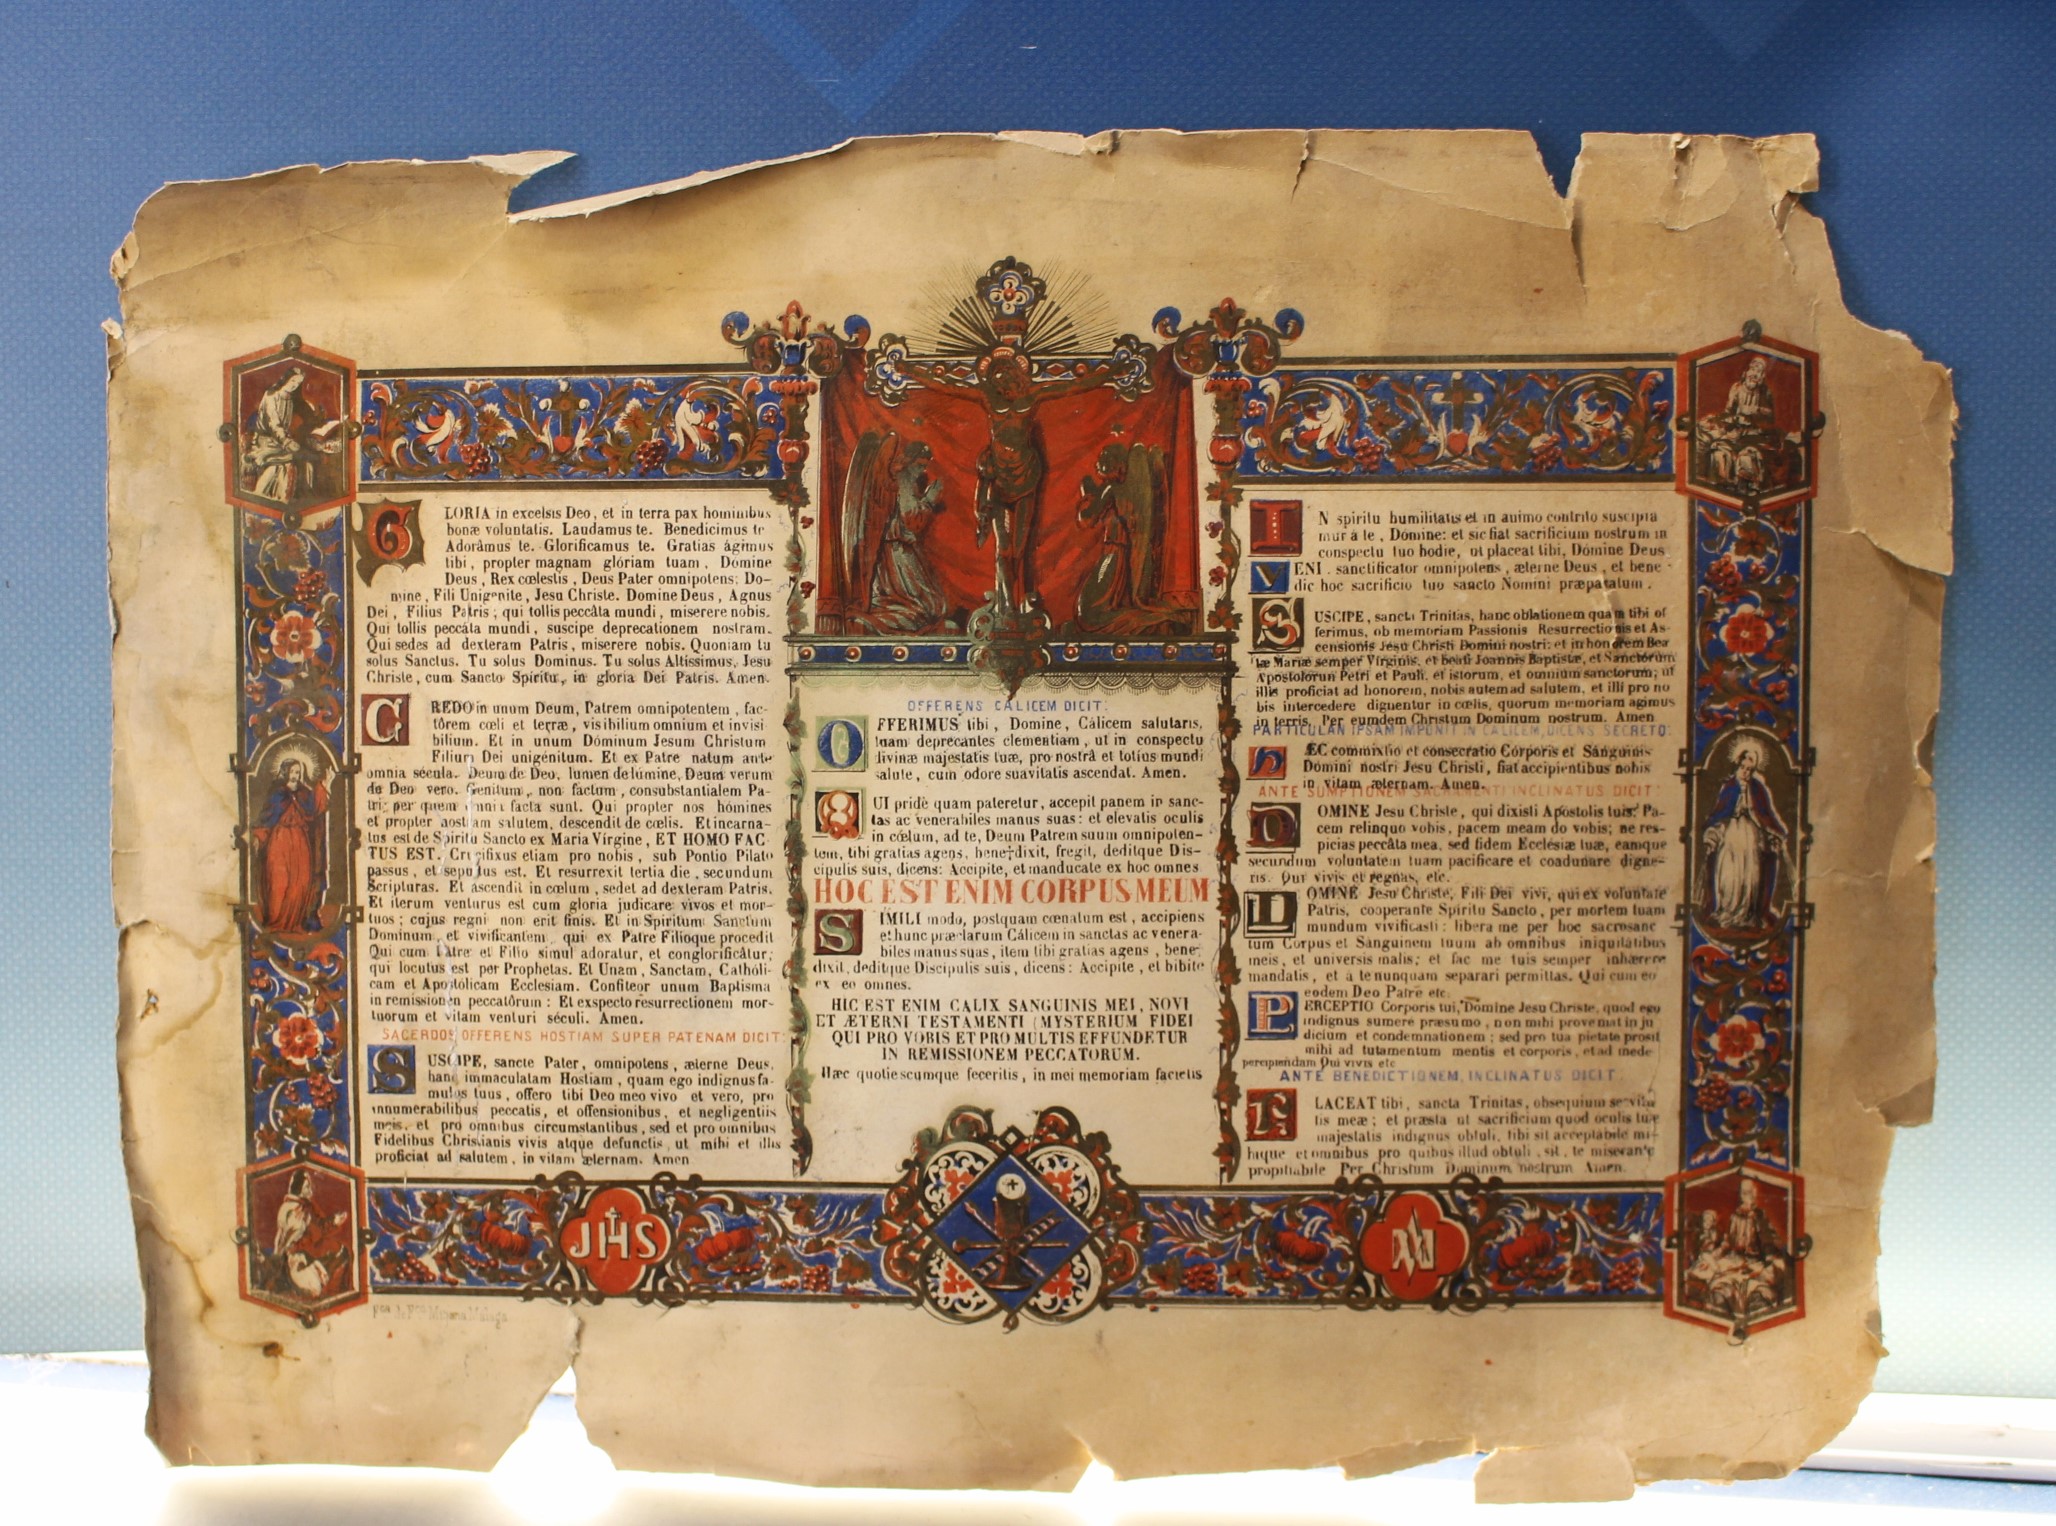 GLORIA in excelsis Deo, et in terra pax hominibus
bonæ voluntatis. Laudamus te. Benedicimus te
Adorâmus te. Glorificamus te. Gratias ágimus
tibi, propter magnam glóriam tuam, Dómine
Deus, Rex cœlestis, Deus Pater omnipotens; Do-
mine, Fili Unigenite, Jesu Christe. Domine Deus, Agnus
Dei, Filius Patris; qui tollis peccâta mundi, miserere nobis.
Qui tollis peccáta mundi, suscipe deprecationem nostram.
Qui sedes ad dexteram Patris, miserere nobis. Quoniam tu
solus Sanctus. Tu solus Dominus. Tu solus Altissimus, Jesu
Christe, cum Sancto Spiritu, in gloria Dei Patris. Amen.
CREDO in unum Deum, Patrem omnipotentem, fac-
tôrem cœli et terræ, visibilium omnium et invisi-
bilium. Et in unum Dóminum Jesum Christum
Filium Dei unigénitum. Et ex Patre natum ante
omnia sécula. Deum de Deo, lumen de lúmine, Deum verum
de Deo vero. Genitum, non factum, consubstantialem Pa-
tri; per quem omnia facta sunt. Qui propter nos hómines
et propter nostram salutem, descendit de cœlis. Et incarna-
tus est de Spiritu Sancto ex Maria Virgine, ET HOMO FAC-
TUS EST. Crucifixus etiam pro nobis, sub Pontio Pilato
passus, et sepultus est. Et resurrexit tertia die, secundum
Scripturas. Et ascendit in cœlum, sedet ad dexteram Patris.
Et iterum venturus est cum gloria judicare vivos et mor-
tuos; cujus regni non erit finis. Et in Spiritum Sanctum
Dominum, et vivificantem, qui ex Patre Filioque procedit
Qui cum Patre et Filio simul adoratur, et conglorificâtur;
qui locutus est per Prophetas. Et Unam, Sanctam, Cathóli-
cam et Apostólicam Ecclesiam. Confiteor unum Baptisma
in remissionen peccatôrum: Et exspecto resurrectionem mor-
tuorum et vitam venturi séculi. Amen.
SACERDOS OFFERENS HOSTIAM SUPER PATENAM DICIT:
SUSCIPE, sancte Pater, omnipotens, æterne Deus,
hanc immaculatam Hostiam, quam ego indignus fa-
mulus tuus, offero tibi Deo meo vivo et vero, pro
innumerabilibus peccatis, et offensionibus, et negligentiis
meis, et pro omnibus circumstantibus, sed et pro omnibus
Fidelibus Christianis vivis atque defunctis, ut mihi et illis
proficiat ad salutem, in vitam æternam. Amen
OFFERENS CALICEM DICIT:
OFFERIMUS tibi, Domine, Cálicem salutaris,
tuam deprecantes clementiam, ut in conspectu
divinæ majestatis tuæ, pro nostrâ et totius mundi
salute, cum odore suavitatis ascendat. Amen.
QUI pridè quam pateretur, accepit panem in sanc-
tas ac venerabiles manus suas: et elevatis oculis
in cœlum, ad te, Deum Patrem suum omnipoten-
tem, tibi gratias agens, bene†dixit, fregit, deditque Dis-
cipulis suis, dicens: Accipite, et manducate ex hoc omnes
HOC EST ENIM CORPUS MEUM
SIMILI modo, postquam cœnatum est, accipiens
et hunc præclarum Cálicem in sanctas ac venera-
biles manus suas, item tibi gratias agens, bene-
dixit, deditque Discipulis suis, dicens: Accipite, et bibite
ex eo omnes.
HIC EST ENIM CALIX SANGUINIS MEI, NOVI
ET ÆTERNI TESTAMENTI (MYSTERIUM FIDEI
QUI PRO VOBIS ET PRO MULTIS EFFUNDETUR
IN REMISSIONEM PECCATORUM.
Hæc quotiescumque feceritis, in mei memoriam facietis
IN spiritu humilitatis et in animo contrito suscipia
mur à te, Dómine: et sic fiat sacrificium nostrum in
conspectu tuo hodie, ut placeat tibi, Dómine Deus
VENI. sanctificator omnipotens, æterne Deus, et bene-
dic hoc sacrificio tuo sancto Nomini præparatum.
SUSCIPE, sancta Trinitas, hanc oblationem quam tibi of
ferimus, ob memoriam Passionis Resurrectionis et As-
censionis Jesu Christi Domini nostri: et in honorem Bea
tæ Mariæ semper Virginis, et beati Joannis Baptistæ, et Sanctorum
Apostolorun Petri et Pauli, et istorum, et omnium sanctorum; ut
illis proficiat ad honorem, nobis autem ad salutem, et illi pro no
bis intercedere dignentur in cœlis, quorum memoriam agimus
in terris. Per eumdem Christum Dominum nostrum. Amen
PARTICULAN IPSAM IMPONIT IN CALICEM, DICENS SECRETO:
HÆC commixtio et consecratio Corporis et Sánguinis
Dómini nostri Jesu Christi, fiat accipientibus nobis
in vitam æternam. Amen.
ANTE SUMPTIONEM SACRAMENTI INCLINATUS DICIT:
DOMINE Jesu Christe, qui dixisti Apóstolis tuis: Pa-
cem relinquo vobis, pacem meam do vobis; ne res-
picias peccâta mea, sed fidem Ecclesiæ tuæ, eamque
secundum voluntatem tuam pacificare et coadunare digne-
ris. Qui vivis et regnas, etc.
DOMINE Jesu Christe, Fili Dei vivi, qui ex voluntate
Patris, cooperante Spiritu Sancto, per mortem tuam
mundum vivificasti: libera me per hoc sacrosanc
tum Corpus et Sanguinem tuum ab omnibus iniquitatibus
meis, et universis malis; et fac me tuis semper inhærere
mandatis, et a te nunquam separari permittas. Qui cum eo
eodem Deo Patre etc.
PERCEPTIO Corporis tui, Domine Jesu Christe, quod ego
indignus sumere præsumo, non mihi provemat in ju
dicium et condemnationem; sed pro tua pietate prosit
mihi ad tutamentum mentis et corporis, et ad mede
percipiendam Qui vivis etc
ANTE BENEDICTIONEM, INCLINATUS DICIT:
PLACEAT tibi, sancta Trinitas, obsequium servitu
tis meæ; et præsta ut sacrificium quod oculis tuæ
majestatis indignus obtuli, tibi sit acceptabile mi-
hique et omnibus pro quibus illud obtuli, sit, te miserante
propitiabile Per Christum Dominum nostrum Amen.
JHS
Málaga